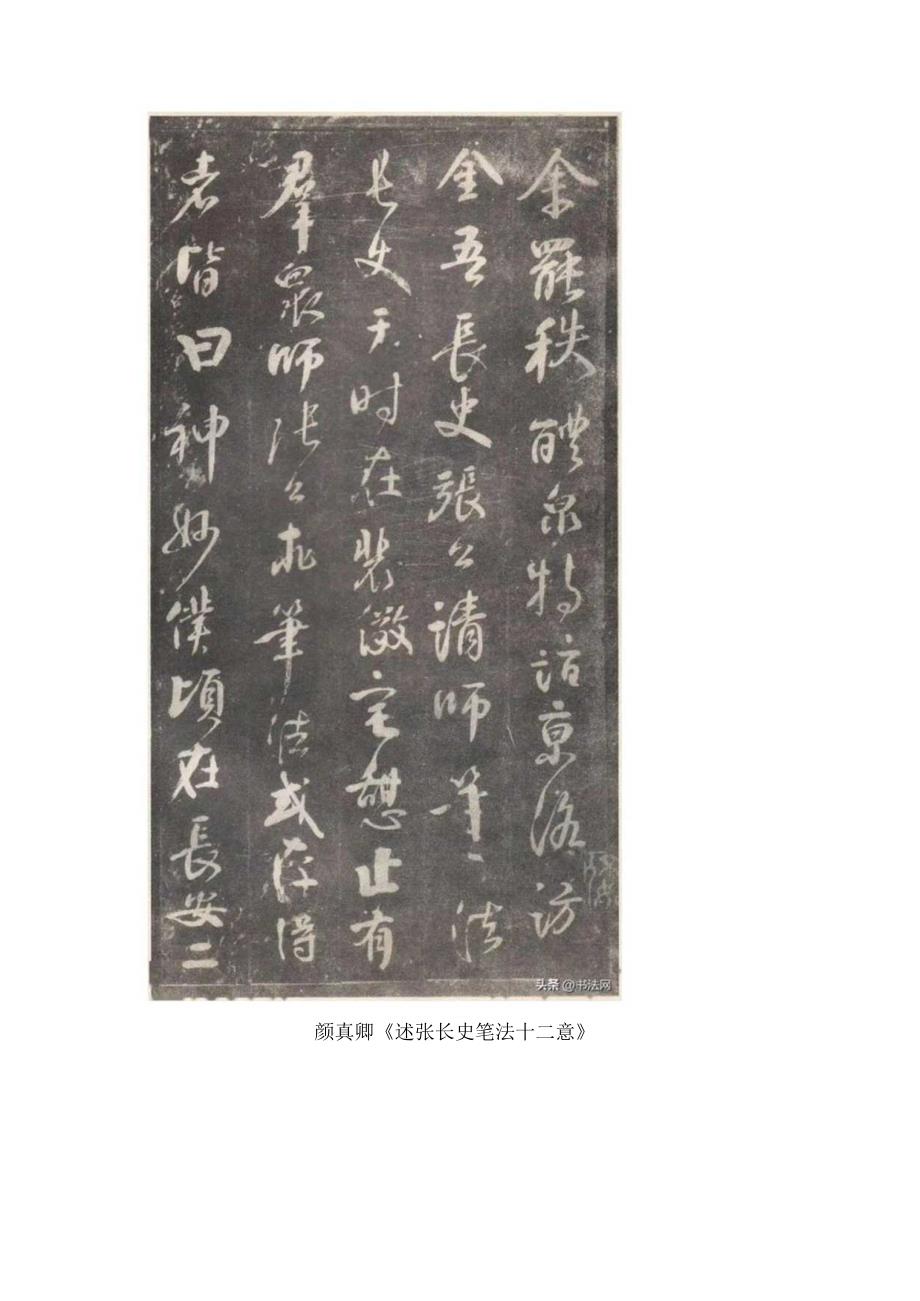 余罷秩醴泉特詣京洛訪
金吾長史張公請師筆法
長史于時在裴儆宅憩止有
羣衆師張公求筆法或存得
者皆曰神妙僕頃在長安二
头条 @书法网
颜真卿《述张长史笔法十二意》